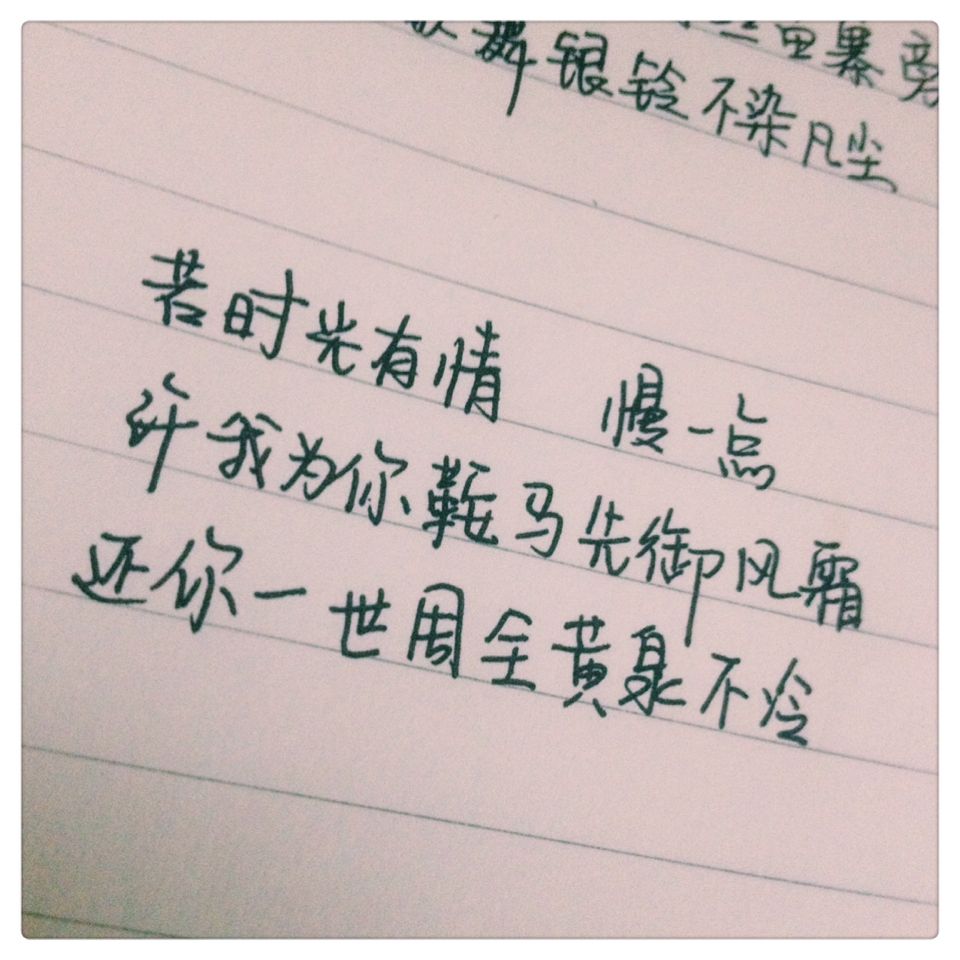 暴旁
舞银铃不染凡尘
若时光有情 慢一点
许我为你鞍马先御风霜
还你一世周全黄泉不冷